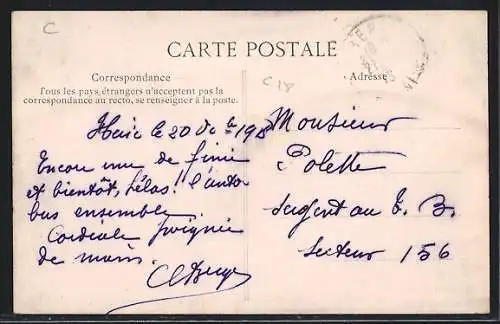 C
CARTE POSTALE
Correspondance
Tous les pays étrangers n'acceptent pas la
correspondance au recto, se renseigner à la poste.
Adresse
C 18
le 20
Encore une de finie
et bientôt, hélas! l'auto
bus ensemble
Cordiale poignée
de main.
Monsieur
Polette
Sergent au T. B.
Secteur 156